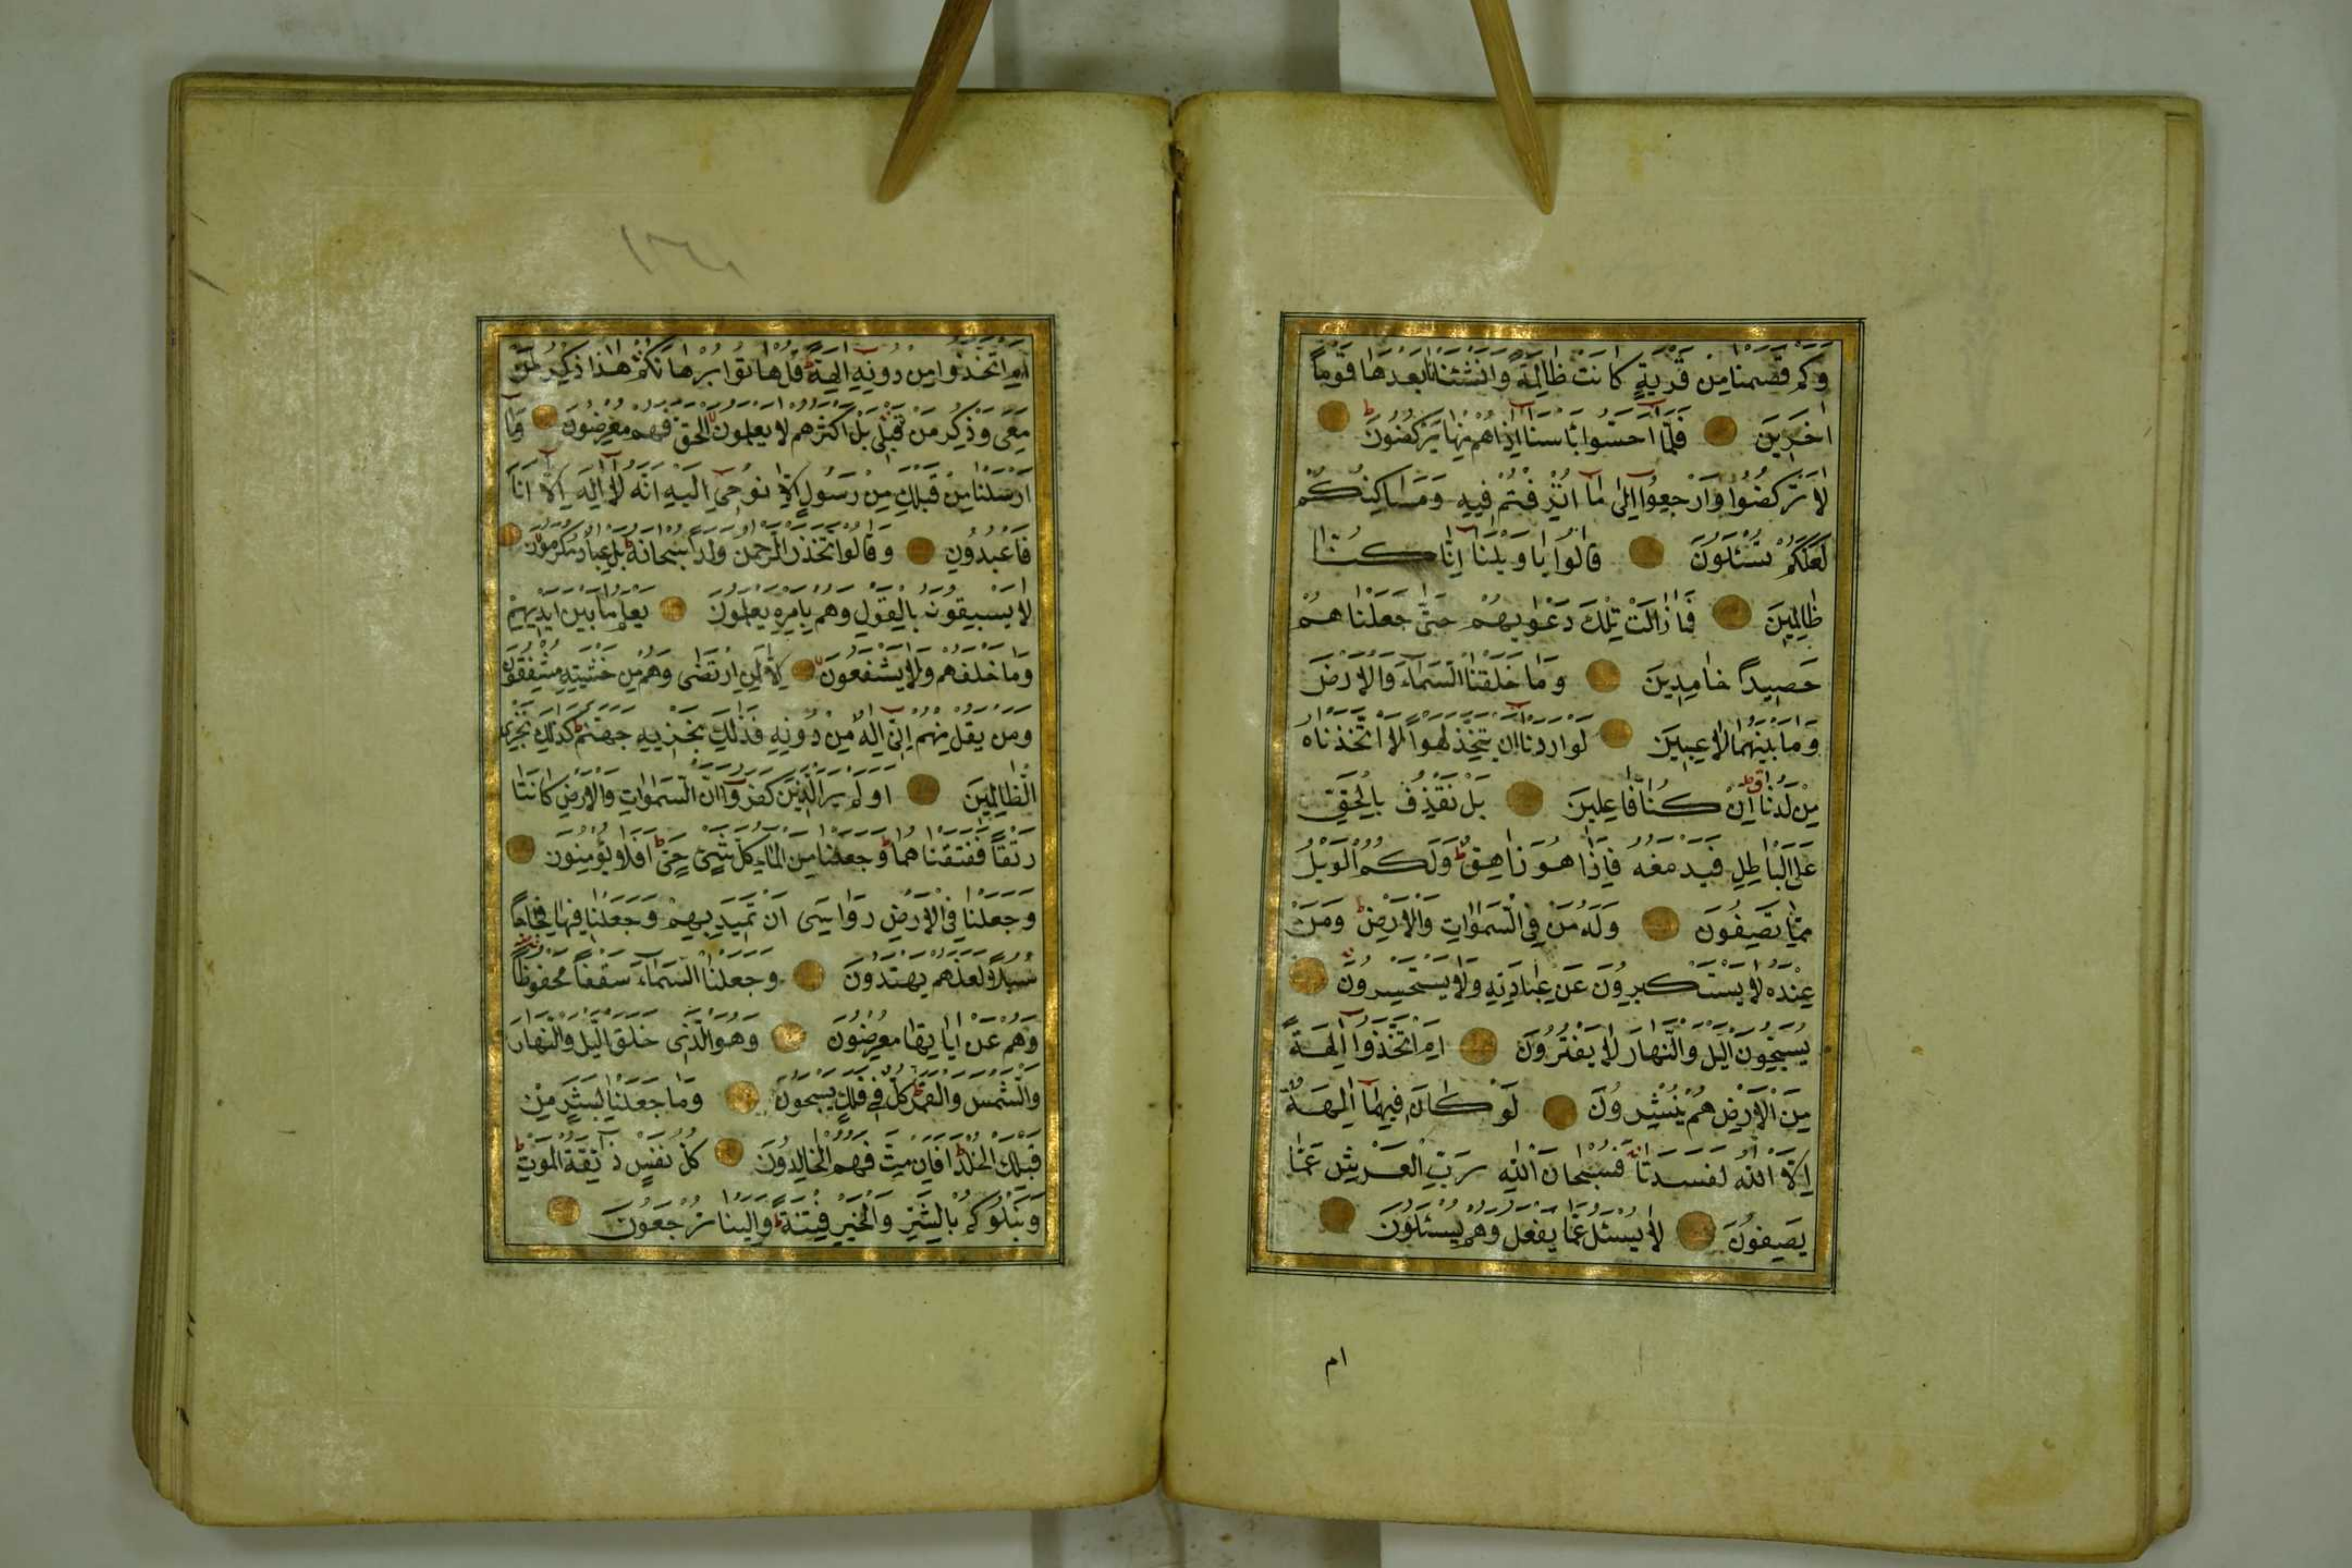 وَكَمْ قَصَمْنَا مِنْ قَرْيَةٍ كَانَتْ ظَالِمَةً وَاَنْشَئْنَا بَعْدَهَا قَوْمًا
اٰخَرِينَ فَلَمَّا اَحَسُّوا بَاْسَنَا اِذَا هُمْ مِنْهَا يَرْكُضُونَ
لَا تَرْكُضُوا وَارْجِعُوا اِلٰى مَا اُتْرِفْتُمْ فِيهِ وَمَسَاكِنِكُمْ
لَعَلَّكُمْ تُسْئَلُونَ قَالُوا يَا وَيْلَنَا اِنَّا كُنَّا
ظَالِمِينَ فَمَا زَالَتْ تِلْكَ دَعْوٰيهُمْ حَتّٰى جَعَلْنَاهُمْ
حَصِيدًا خَامِدِينَ وَمَا خَلَقْنَا السَّمَاءَ وَالْاَرْضَ
وَمَا بَيْنَهُمَا لَاعِبِينَ لَوْ اَرَدْنَا اَنْ نَتَّخِذَ لَهْوًا لَاتَّخَذْنَاهُ
مِنْ لَدُنَّا اِنْ كُنَّا فَاعِلِينَ بَلْ نَقْذِفُ بِالْحَقِّ
عَلَى الْبَاطِلِ فَيَدْمَغُهُ فَاِذَا هُوَ زَاهِقٌ وَلَكُمُ الْوَيْلُ
مِمَّا تَصِفُونَ وَلَهُ مَنْ فِي السَّمٰوَاتِ وَالْاَرْضِ وَمَنْ
عِنْدَهُ لَا يَسْتَكْبِرُونَ عَنْ عِبَادَتِهِ وَلَا يَسْتَحْسِرُونَ
يُسَبِّحُونَ الَّيْلَ وَالنَّهَارَ لَا يَفْتُرُونَ اَمِ اتَّخَذُوا اٰلِهَةً
مِنَ الْاَرْضِ هُمْ يُنْشِرُونَ لَوْ كَانَ فِيهِمَا اٰلِهَةٌ
اِلَّا اللّٰهُ لَفَسَدَتَا فَسُبْحَانَ اللّٰهِ رَبِّ الْعَرْشِ عَمَّا
يَصِفُونَ لَا يُسْئَلُ عَمَّا يَفْعَلُ وَهُمْ يُسْئَلُونَ
ام
١٦١
اَمِ اتَّخَذُوا مِنْ دُونِهِ اٰلِهَةً قُلْ هَاتُوا بُرْهَانَكُمْ هٰذَا ذِكْرُ مَنْ
مَعِيَ وَذِكْرُ مَنْ قَبْلِي بَلْ اَكْثَرُهُمْ لَا يَعْلَمُونَ الْحَقَّ فَهُمْ مُعْرِضُونَ وَمَا
اَرْسَلْنَا مِنْ قَبْلِكَ مِنْ رَسُولٍ اِلَّا نُوحِي اِلَيْهِ اَنَّهُ لَا اِلٰهَ اِلَّا اَنَا
فَاعْبُدُونِ وَقَالُوا اتَّخَذَ الرَّحْمٰنُ وَلَدًا سُبْحَانَهُ بَلْ عِبَادٌ مُكْرَمُونَ
لَا يَسْبِقُونَهُ بِالْقَوْلِ وَهُمْ بِاَمْرِهِ يَعْمَلُونَ يَعْلَمُ مَا بَيْنَ اَيْدِيهِمْ
وَمَا خَلْفَهُمْ وَلَا يَشْفَعُونَ اِلَّا لِمَنِ ارْتَضٰى وَهُمْ مِنْ خَشْيَتِهِ مُشْفِقُونَ
وَمَنْ يَقُلْ مِنْهُمْ اِنِّي اِلٰهٌ مِنْ دُونِهِ فَذٰلِكَ نَجْزِيهِ جَهَنَّمَ كَذٰلِكَ نَجْزِي
الظَّالِمِينَ اَوَلَمْ يَرَ الَّذِينَ كَفَرُوا اَنَّ السَّمٰوَاتِ وَالْاَرْضَ كَانَتَا
رَتْقًا فَفَتَقْنَاهُمَا وَجَعَلْنَا مِنَ الْمَاءِ كُلَّ شَيْءٍ حَيٍّ اَفَلَا يُؤْمِنُونَ
وَجَعَلْنَا فِي الْاَرْضِ رَوَاسِيَ اَنْ تَمِيدَ بِهِمْ وَجَعَلْنَا فِيهَا فِجَاجًا
سُبُلًا لَعَلَّهُمْ يَهْتَدُونَ وَجَعَلْنَا السَّمَاءَ سَقْفًا مَحْفُوظًا
وَهُمْ عَنْ اٰيَاتِهَا مُعْرِضُونَ وَهُوَ الَّذِي خَلَقَ الَّيْلَ وَالنَّهَارَ
وَالشَّمْسَ وَالْقَمَرَ كُلٌّ فِي فَلَكٍ يَسْبَحُونَ وَمَا جَعَلْنَا لِبَشَرٍ مِنْ
قَبْلِكَ الْخُلْدَ اَفَاِنْ مِتَّ فَهُمُ الْخَالِدُونَ كُلُّ نَفْسٍ ذَائِقَةُ الْمَوْتِ
وَنَبْلُوكُمْ بِالشَّرِّ وَالْخَيْرِ فِتْنَةً وَاِلَيْنَا تُرْجَعُونَ